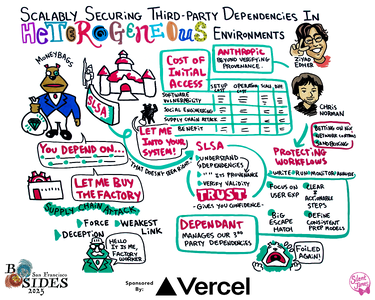 SCALABLY SECURING THIRD-PARTY DEPENDENCIES IN
HETEROGENEOUS ENVIRONMENTS
MONEYBAGS
SLSA
COST OF
INITIAL
ACCESS
ANTHROPIC
BEYOND VERIFYING
PROVENANCE.
ZIYAD
EDHER
SETUP
COST
OPERATION
COST
SCALABILITY
SOFTWARE
VULNERABILITY
SOCIAL ENGINEERING
SUPPLY CHAIN ATTACK
BENEFIT
CHRIS
NORMAN
YOU DEPEND ON...
LET ME
INTO YOUR
SYSTEM!
THAT DOESN'T
LET ME BUY
THE FACTORY
SLSA
UNDERSTAND
DEPENDENCIES
ITS PROVENANCE
VERIFY VALIDITY
TRUST
GIVES YOU CONFIDENCE
SANDBOXING
PROTECTING
WORKFLOWS
FOCUS ON
USER EXP
CLEAR
ACTIONABLE
STEPS
BIG
ESCAPE
HATCH
DEFINE
CONSISTENT
SUPPLY CHAIN ATTACK
FORCE
WEAKEST
LINK
DECEPTION
HELLO
IT IS ME,
FACTORY
WORKER
DEPENDANT
MANAGES OUR 3RD
PARTY DEPENDENCIES
FOILED
AGAIN!
BSIDES
San Francisco
2025
Sponsored
By:
Vercel